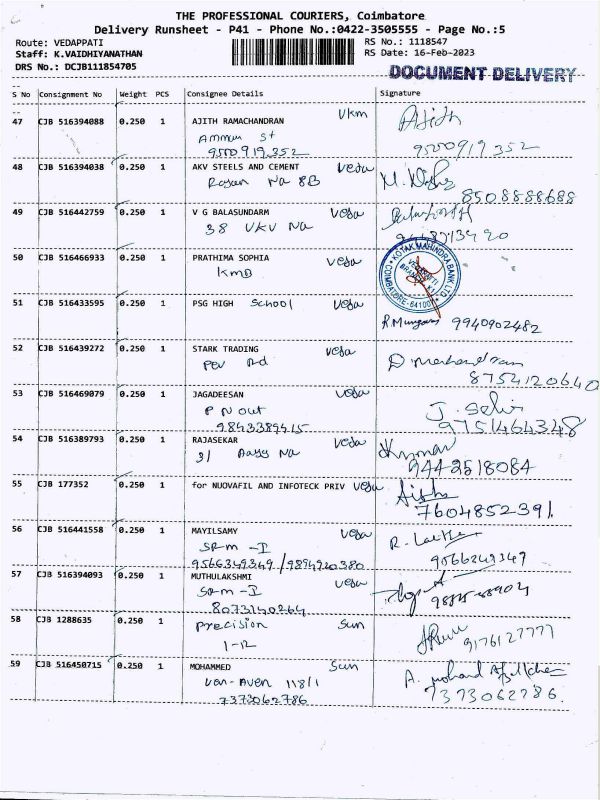 THE PROFESSIONAL COURIERS, Coimbatore
Delivery Runsheet - P41 - Phone No.:0422-3505555 - Page No.:5
Route: VEDAPPATI
RS No.: 1118547
Staff: K.VAIDHIYANATHAN
RS Date: 16-Feb-2023
DRS No.: DCJB111854705
DOCUMENT DELIVERY
S No Consignment No Weight PCS Consignee Details Signature
47 CJB 516394088 0.250 1 AJITH RAMACHANDRAN Vkm Ajith
Ammun St
9500919352 9500919352
48 CJB 516394038 0.250 1 AKV STEELS AND CEMENT Veda
Rajan Na 8B 8508888688
49 CJB 516442759 0.250 1 V G BALASUNDARM Veda
38 VKV Na
50 CJB 516466933 0.250 1 PRATHIMA SOPHIA Veda
KMB
KOTAK MAHINDRA BANK LTD.
COIMBATORE-64100
51 CJB 516433595 0.250 1 PSG HIGH School Veda
R.Murugan 9940902482
52 CJB 516439272 0.250 1 STARK TRADING Veda
Rd 8754120640
53 CJB 516469079 0.250 1 JAGADEESAN Veda
P N out J. Selvi
9843389415 9751464348
54 CJB 516389793 0.250 1 RAJASEKAR Veda
31 Na 9442518084
55 CJB 177352 0.250 1 for NUOVAFIL AND INFOTECK PRIV Veda
7604852391
56 CJB 516441558 0.250 1 MAYILSAMY Veda
SRM -I
9566349349 /9894920380 9566249349
57 CJB 516394093 0.250 1 MUTHULAKSHMI Veda
SRM -I
8073140264
58 CJB 1288635 0.250 1 Precision Sun
1-12 9176127777
59 CJB 516450715 0.250 1 MOHAMMED Sun
118/1
7373062786 7373062786.